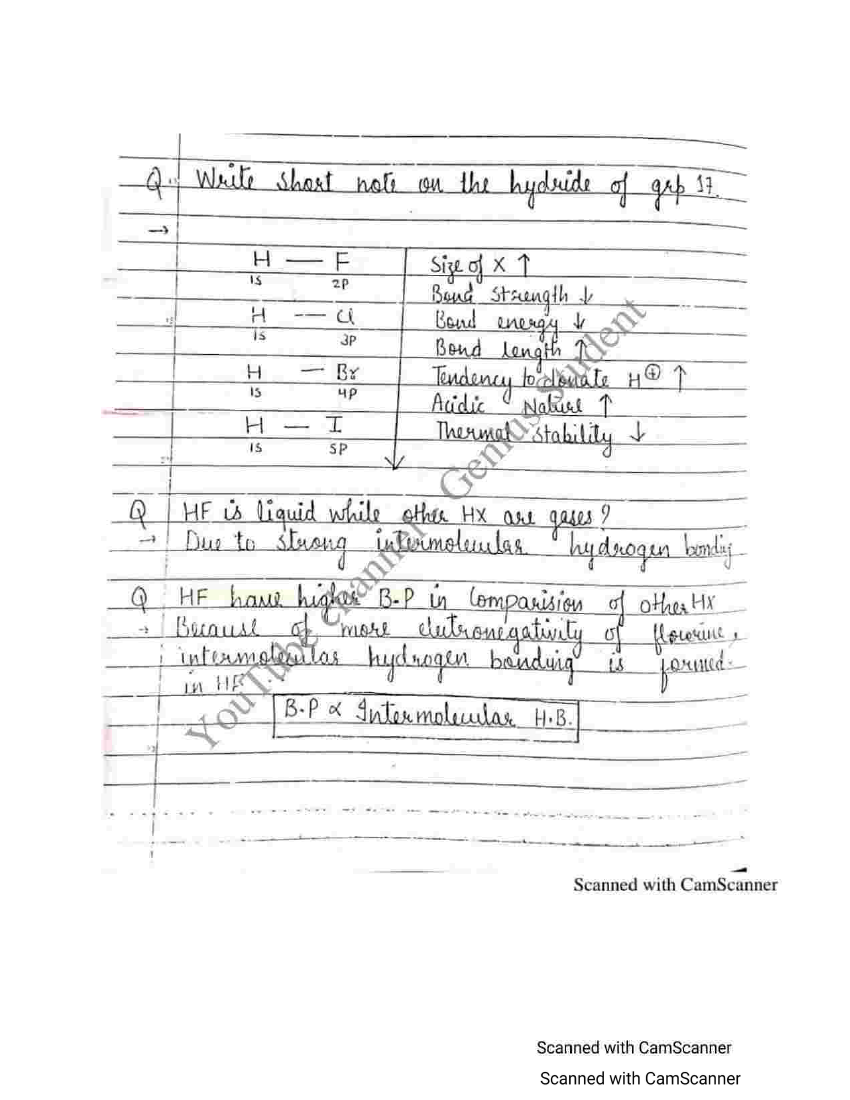 Q. Write short note on the hydride of grp 17.
→
H — F
1s 2p
H — Cl
1s 3p
H — Br
1s 4p
H — I
1s 5p
Size of X ↑
Bond strength ↓
Bond energy ↓
Bond length ↑
Tendency to donate H⊕ ↑
Acidic Nature ↑
Thermal stability ↓
Q HF is liquid while other HX are gases?
→ Due to strong intermolecular hydrogen bonding
Q HF have higher B.P in Comparision of other HX
→ Because of more electronegativity of flourine,
intermolecular hydrogen bonding is formed.
in HF
B.P ∝ Intermolecular H.B.
YouTube channel - Genius Student
Scanned with CamScanner
Scanned with CamScanner
Scanned with CamScanner